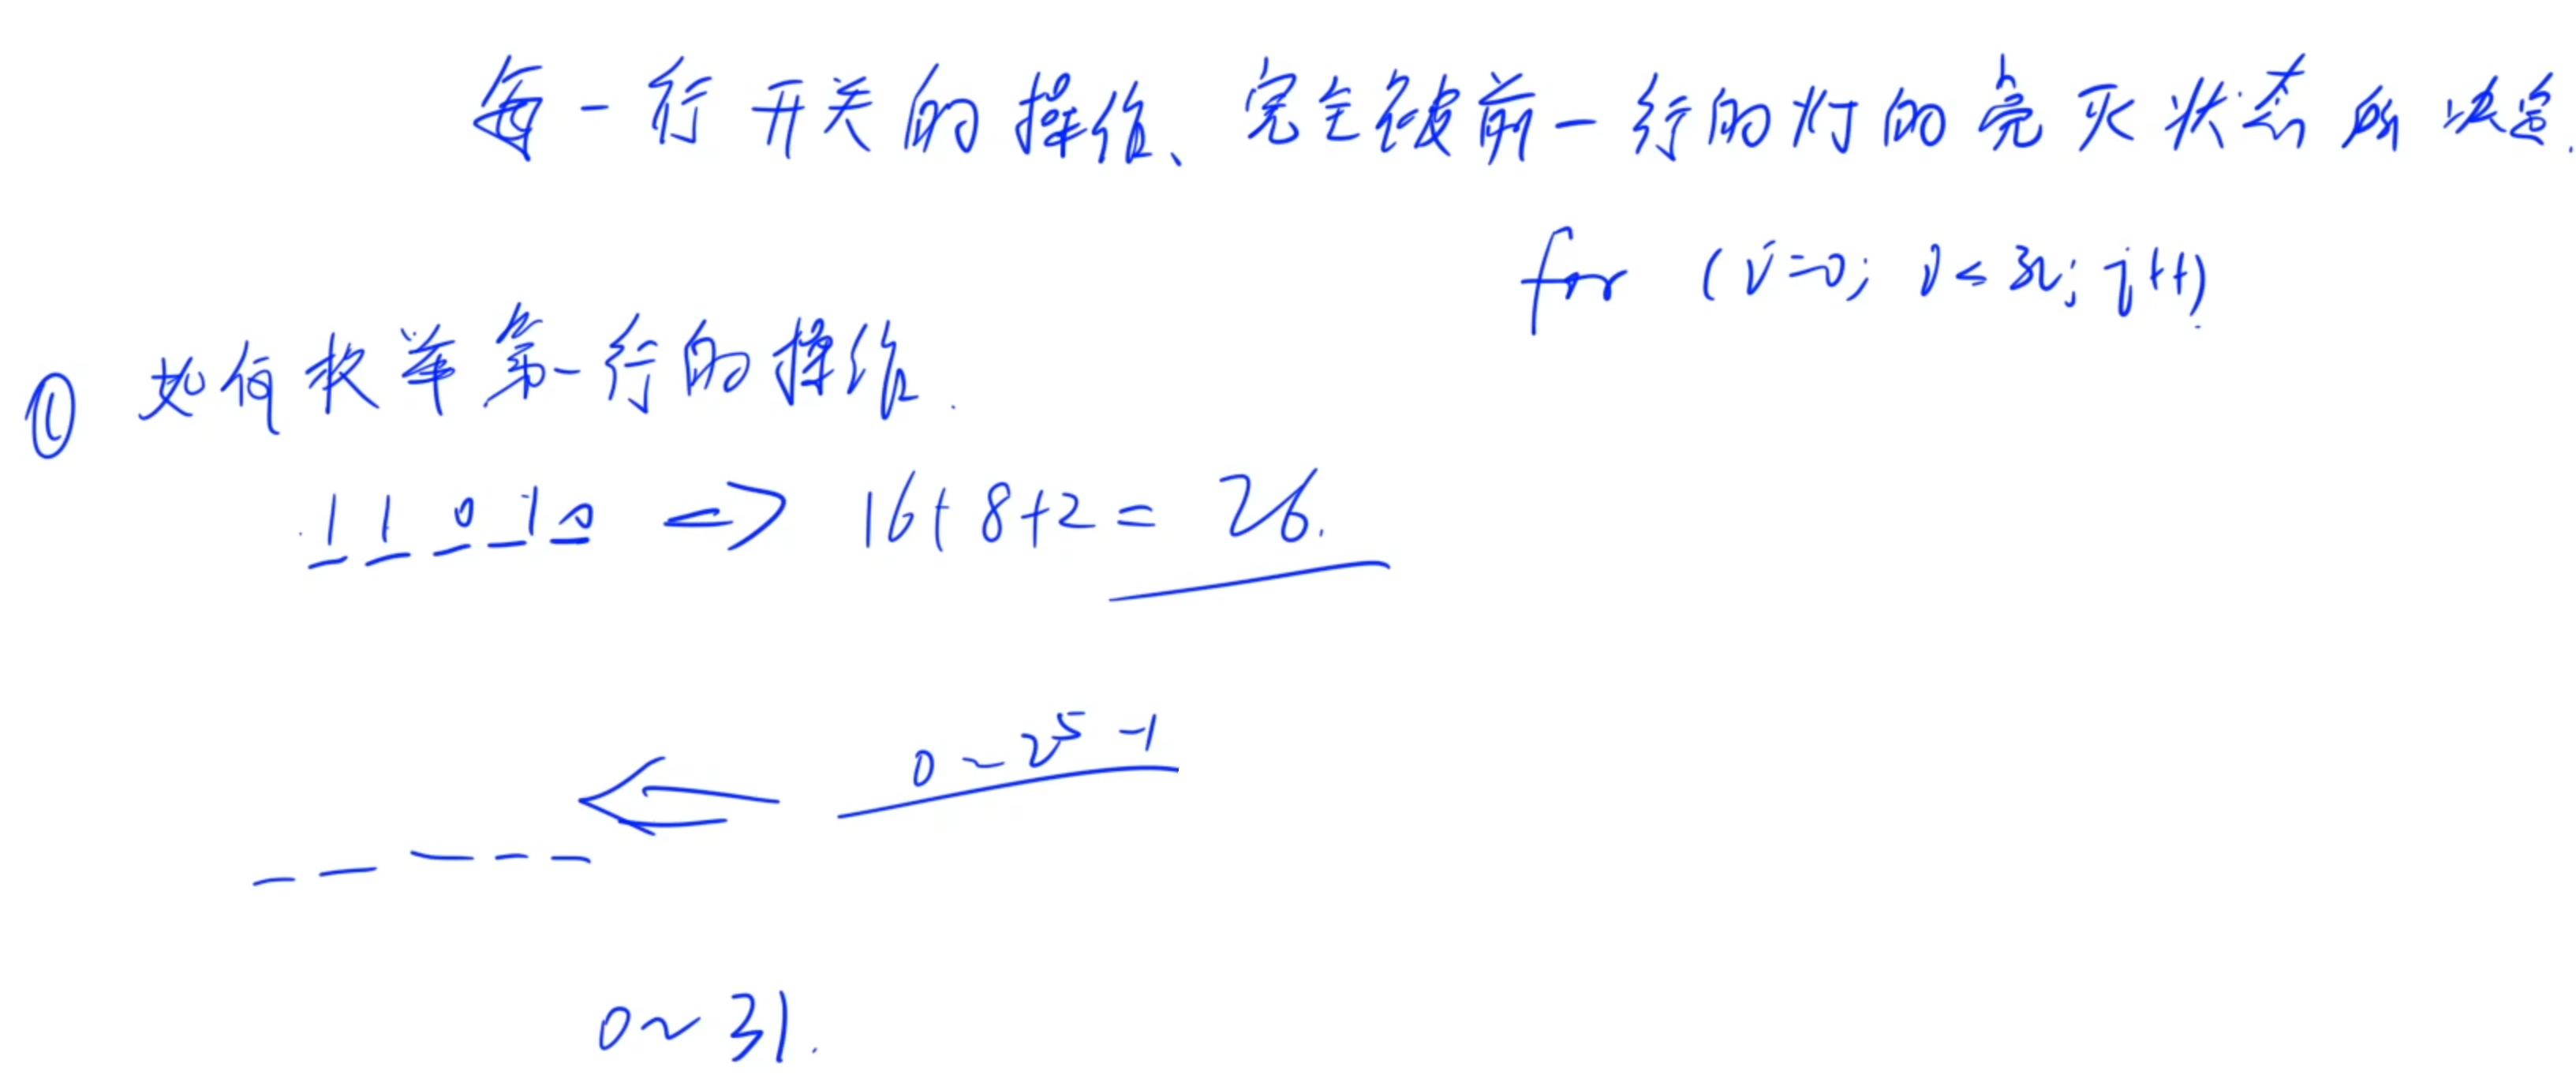 每一行开关的操作、完全被前一行的灯的亮灭状态所决定.
for (i=0; i<32; i++)
① 如何枚举第一行的操作.
1 1 0 1 0 => 16+8+2 = 26.
0~2^5-1
0~31.